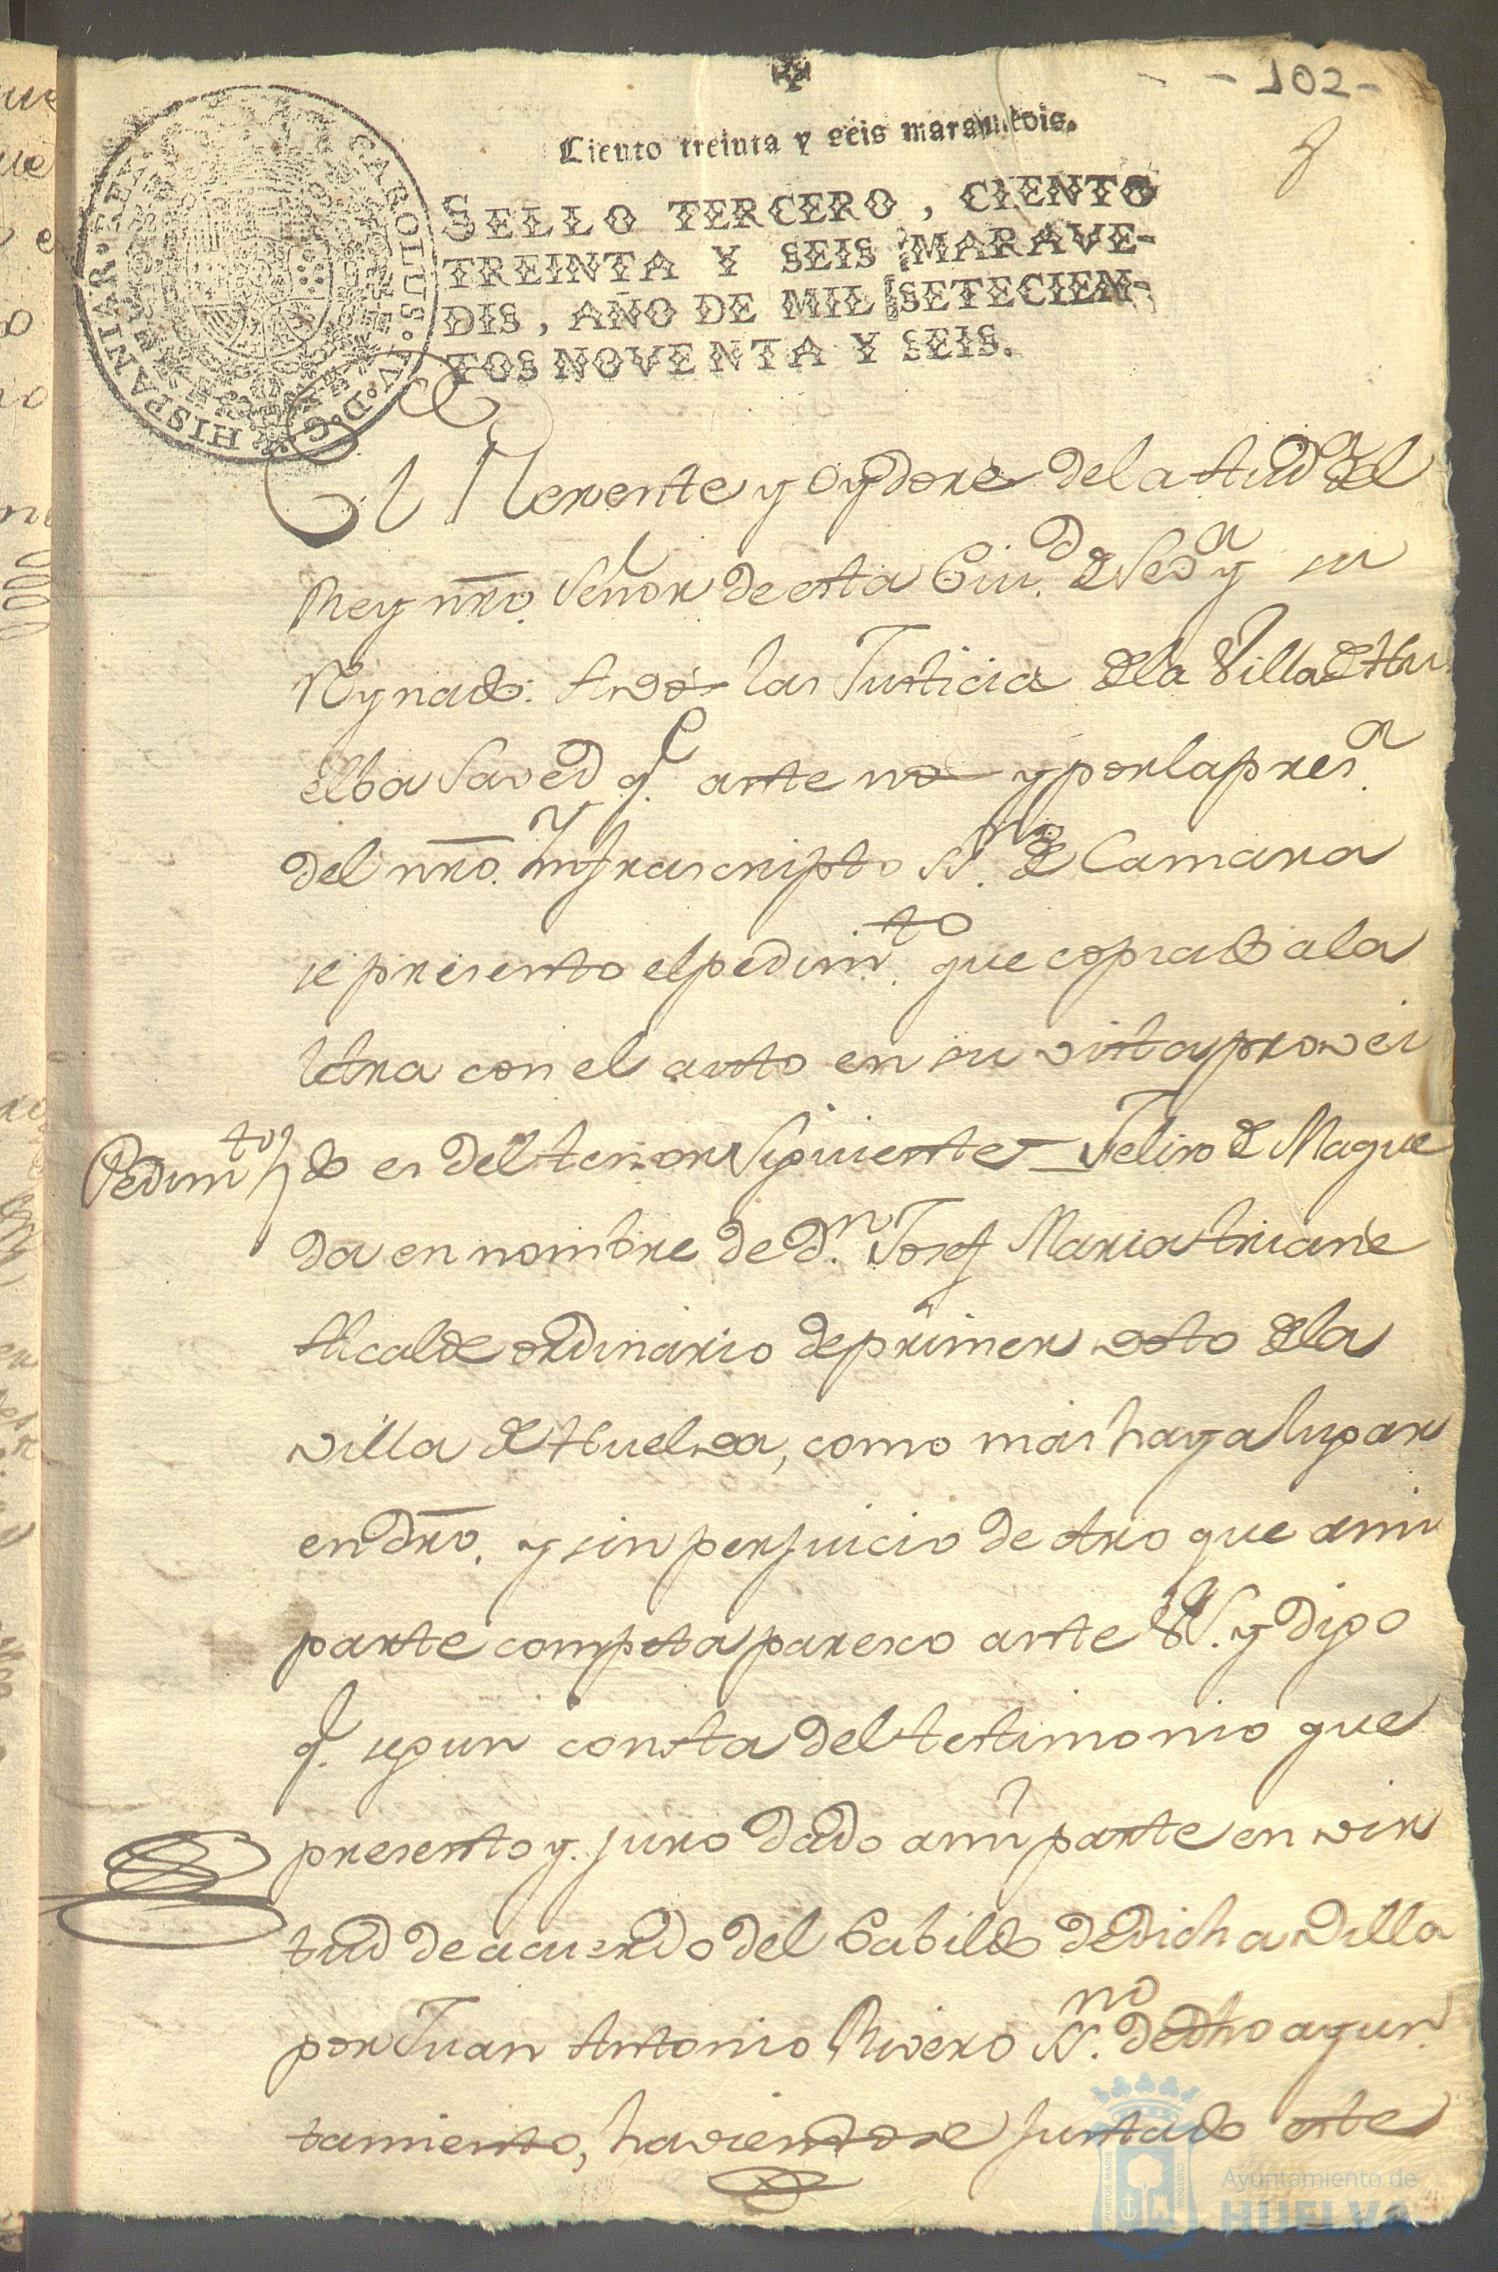 - 102 -
Ciento treinta y seis maravedis.
SELLO TERCERO, CIENTO
TREINTA Y SEIS MARAVE-
DIS, AÑO DE MIL SETECIEN-
TOS NOVENTA Y SEIS.
CAROLUS · IV · D · G · HISPANIAR · REX
El Rexente y Oydores de la Audª del
Rey nrõ. Señor de esta Ciud. de Sevª y su
Reynado: A vos las Justicias de la Villa de Hu
elba Saved q.e ante nos y por la pres.a
del nrõ. Ynfrascripto SS.no de Camara
se presento el pedim.to que copiado a la
letra con el auto en su vista provei
Pedim.to do es del tenor Siguiente = Felix de Maque
da en nombre de D.n Josef Maria Triane
Alcalde ordinario de primer voto de la
villa de Huelva, como mas haya lugar
en drõ. y sin perjuicio de otro que a mi
parte competa paresco ante VS. y digo
q.e segun consta del testimonio que
presento y juro dado a mi parte en vir
tud de acuerdo del Cabildo de dicha Villa
por Juan Antonio Rivero SS.no de dho ayun
tamiento, haviendose juntado este
PORTUS MARIS
Ayuntamiento de
HUELVA